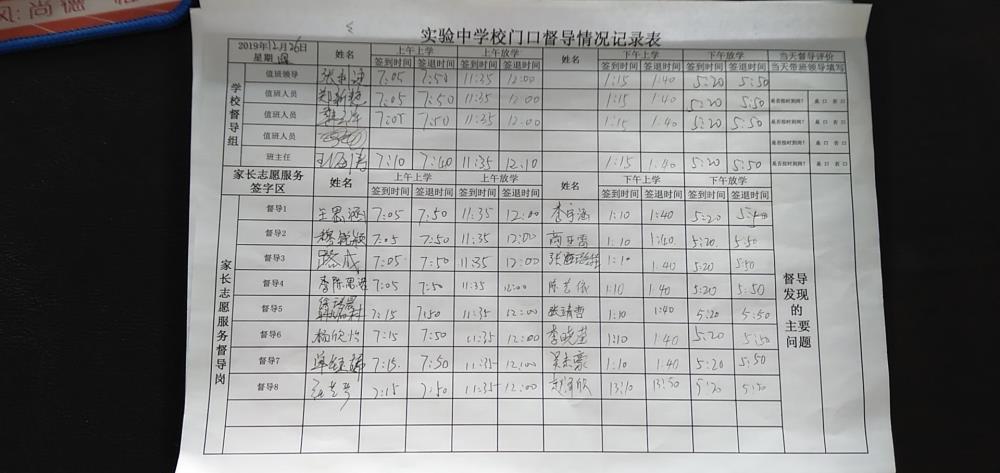 风:尚德
实验中学校门口督导情况记录表
2019年12月26日 星期四 姓名 上午上学 上午放学 姓名 下午上学 下午放学 当天督导评价
签到时间 签退时间 签到时间 签退时间 签到时间 签退时间 签到时间 签退时间 当天带班领导填写
学校督导组
值班领导 7:05 7:50 11:35 12:00 1:15 1:40 5:20 5:50
值班人员 7:05 7:50 11:35 12:00 1:15 1:40 5:20 5:50 是否按时到岗? 是口 否口
值班人员 7:05 7:50 11:35 12:00 1:15 1:40 5:20 5:50 是否按时到岗? 是口 否口
值班人员 是否按时到岗? 是口 否口
班主任 7:10 7:40 11:35 12:10 1:15 1:40 5:20 5:50 是否按时到岗? 是口 否口
家长志愿服务签字区 姓名 上午上学 上午放学 姓名 下午上学 下午放学
签到时间 签退时间 签到时间 签退时间 签到时间 签退时间 签到时间 签退时间
家长志愿服务督导岗
督导1 王思涵 7:05 7:50 11:35 12:00 李宇涵 1:10 1:40 5:20 5:50
督导2 7:05 7:50 11:35 12:00 1:10 1:40 5:20 5:50
督导3 路威 7:05 7:50 11:35 12:00 1:10 1:40 5:20 5:50
督导4 7:05 7:50 11:35 12:00 陈艺依 1:10 1:40 5:20 5:50
督导5 7:15 7:50 11:35 12:00 张靖哲 1:10 1:40 5:20 5:50
督导6 杨欣怡 7:15 7:50 11:35 12:00 1:10 1:40 5:20 5:50
督导7 7:15 7:50 11:35 12:00 吴志豪 1:10 1:40 5:20 5:50
督导8 7:15 7:50 11:35 12:00 13:10 13:50 5:20 5:50
督导发现的主要问题